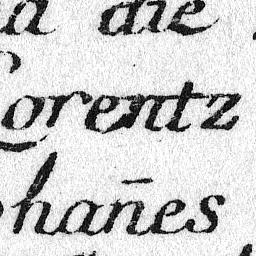 die
Lorentz
Johañes